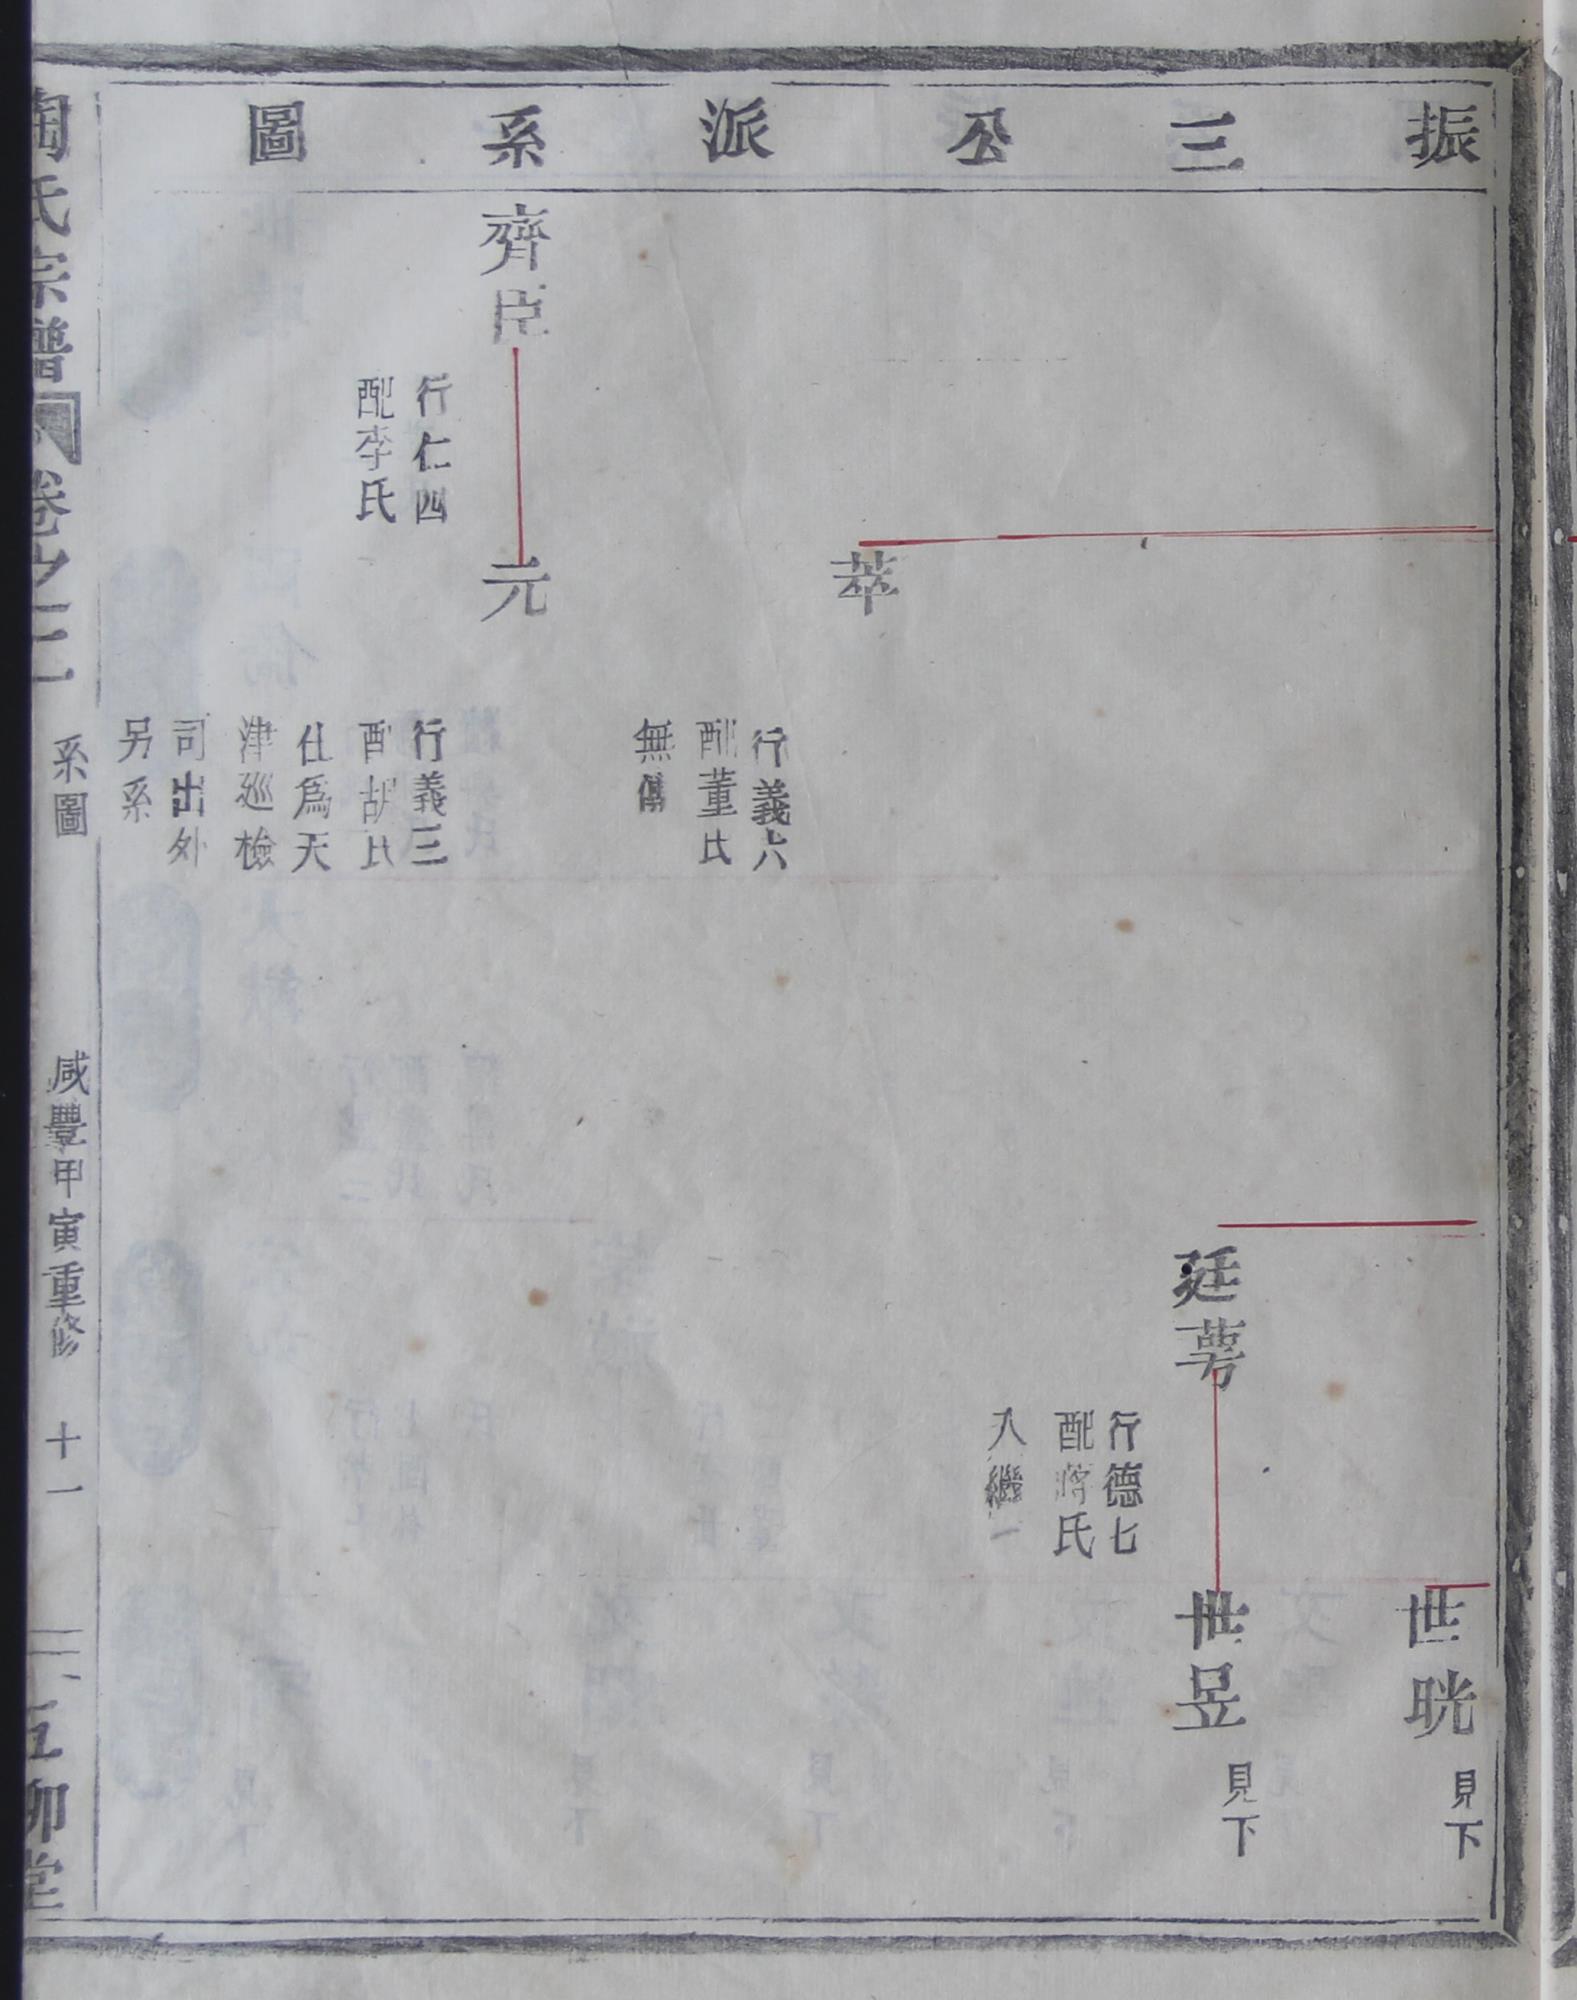 振三公派系圖
世晄
見下
廷蕚
行德七
配蔣氏
入繼一
世昱
見下
萃
行義六
配董氏
無傳
齊臣
行仁四
配李氏
元
行義三
配胡氏
仕爲天
津巡檢
司出外
另系
陶氏宗譜
卷之二
系圖
咸豐甲寅重修
十一
五柳堂